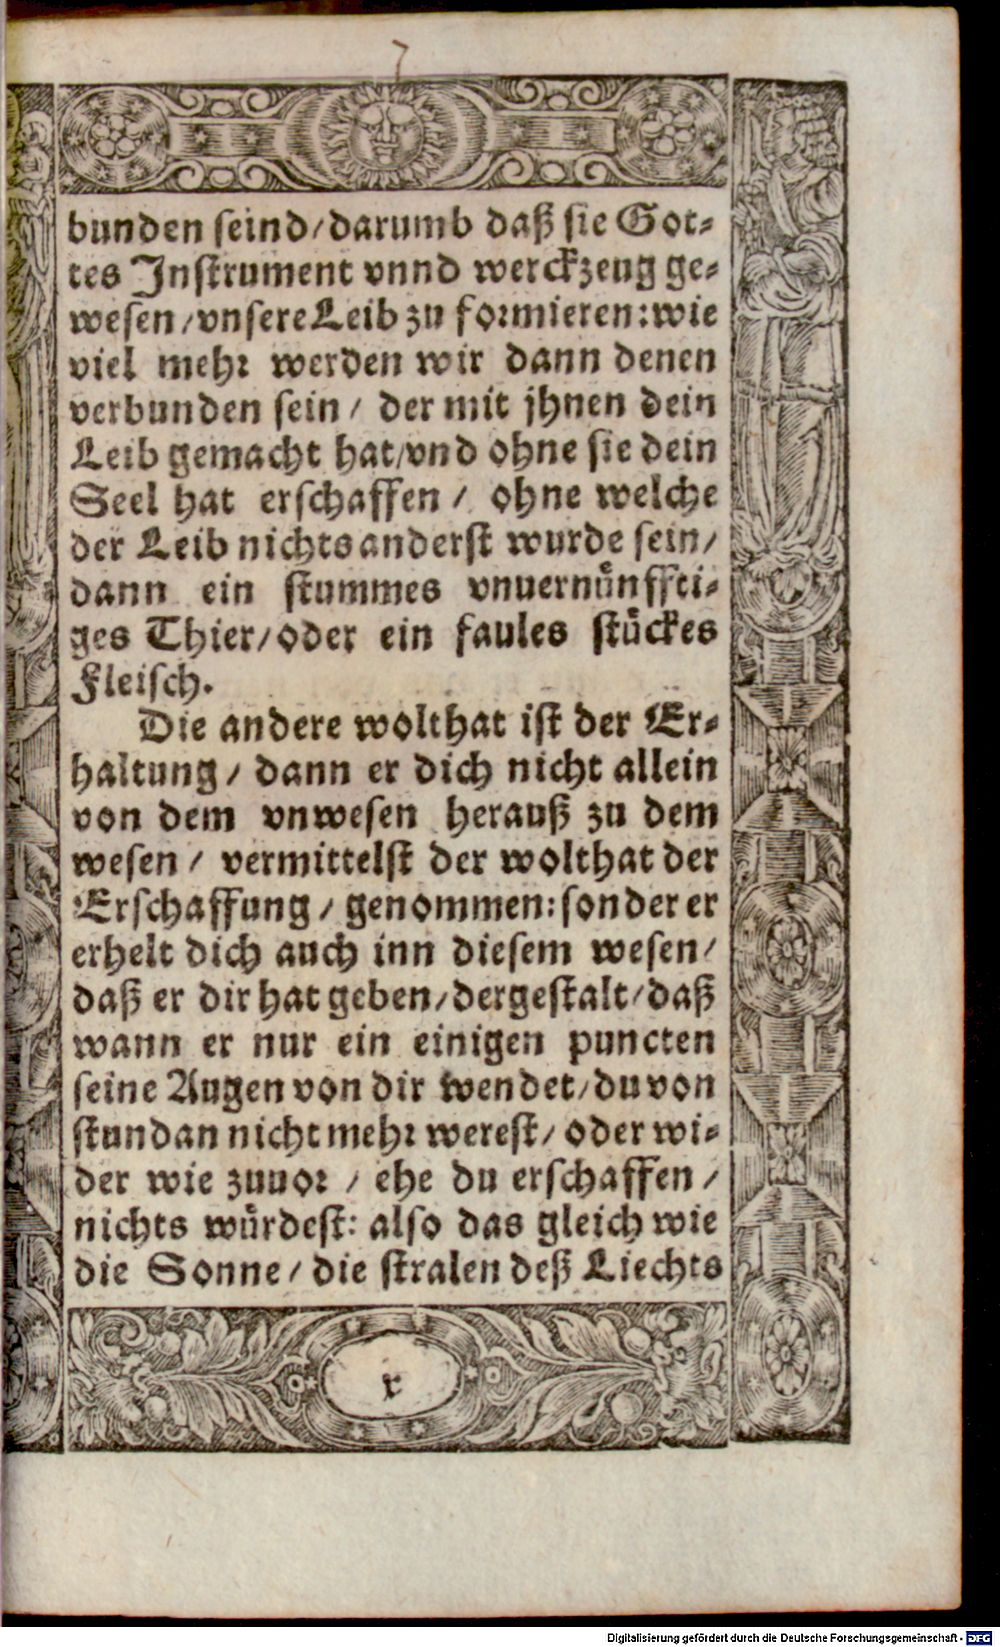 7
bunden seind/darumb daß sie Got-
tes Instrument vnnd werckzeug ge-
wesen/vnsere Leib zu formieren: wie
viel mehr werden wir dann denen
verbunden sein/ der mit jhnen dein
Leib gemacht hat/vnd ohne sie dein
Seel hat erschaffen/ ohne welche
der Leib nichts anderst wurde sein/
dann ein stummes vnuernůnffti-
ges Thier/oder ein faules stůckes
Fleisch.
Die andere wolthat ist der Er-
haltung/ dann er dich nicht allein
von dem vnwesen herauß zu dem
wesen/ vermittelst der wolthat der
Erschaffung/ genommen: sonder er
erhelt dich auch inn diesem wesen/
daß er dir hat geben/dergestalt/daß
wann er nur ein einigen puncten
seine Augen von dir wendet/du von
stund an nicht mehr werest/oder wi-
der wie zuuor/ ehe du erschaffen/
nichts würdest: also das gleich wie
die Sonne/ die stralen deß Liechts
x
Digitalisierung gefördert durch die Deutsche Forschungsgemeinschaft - DFG